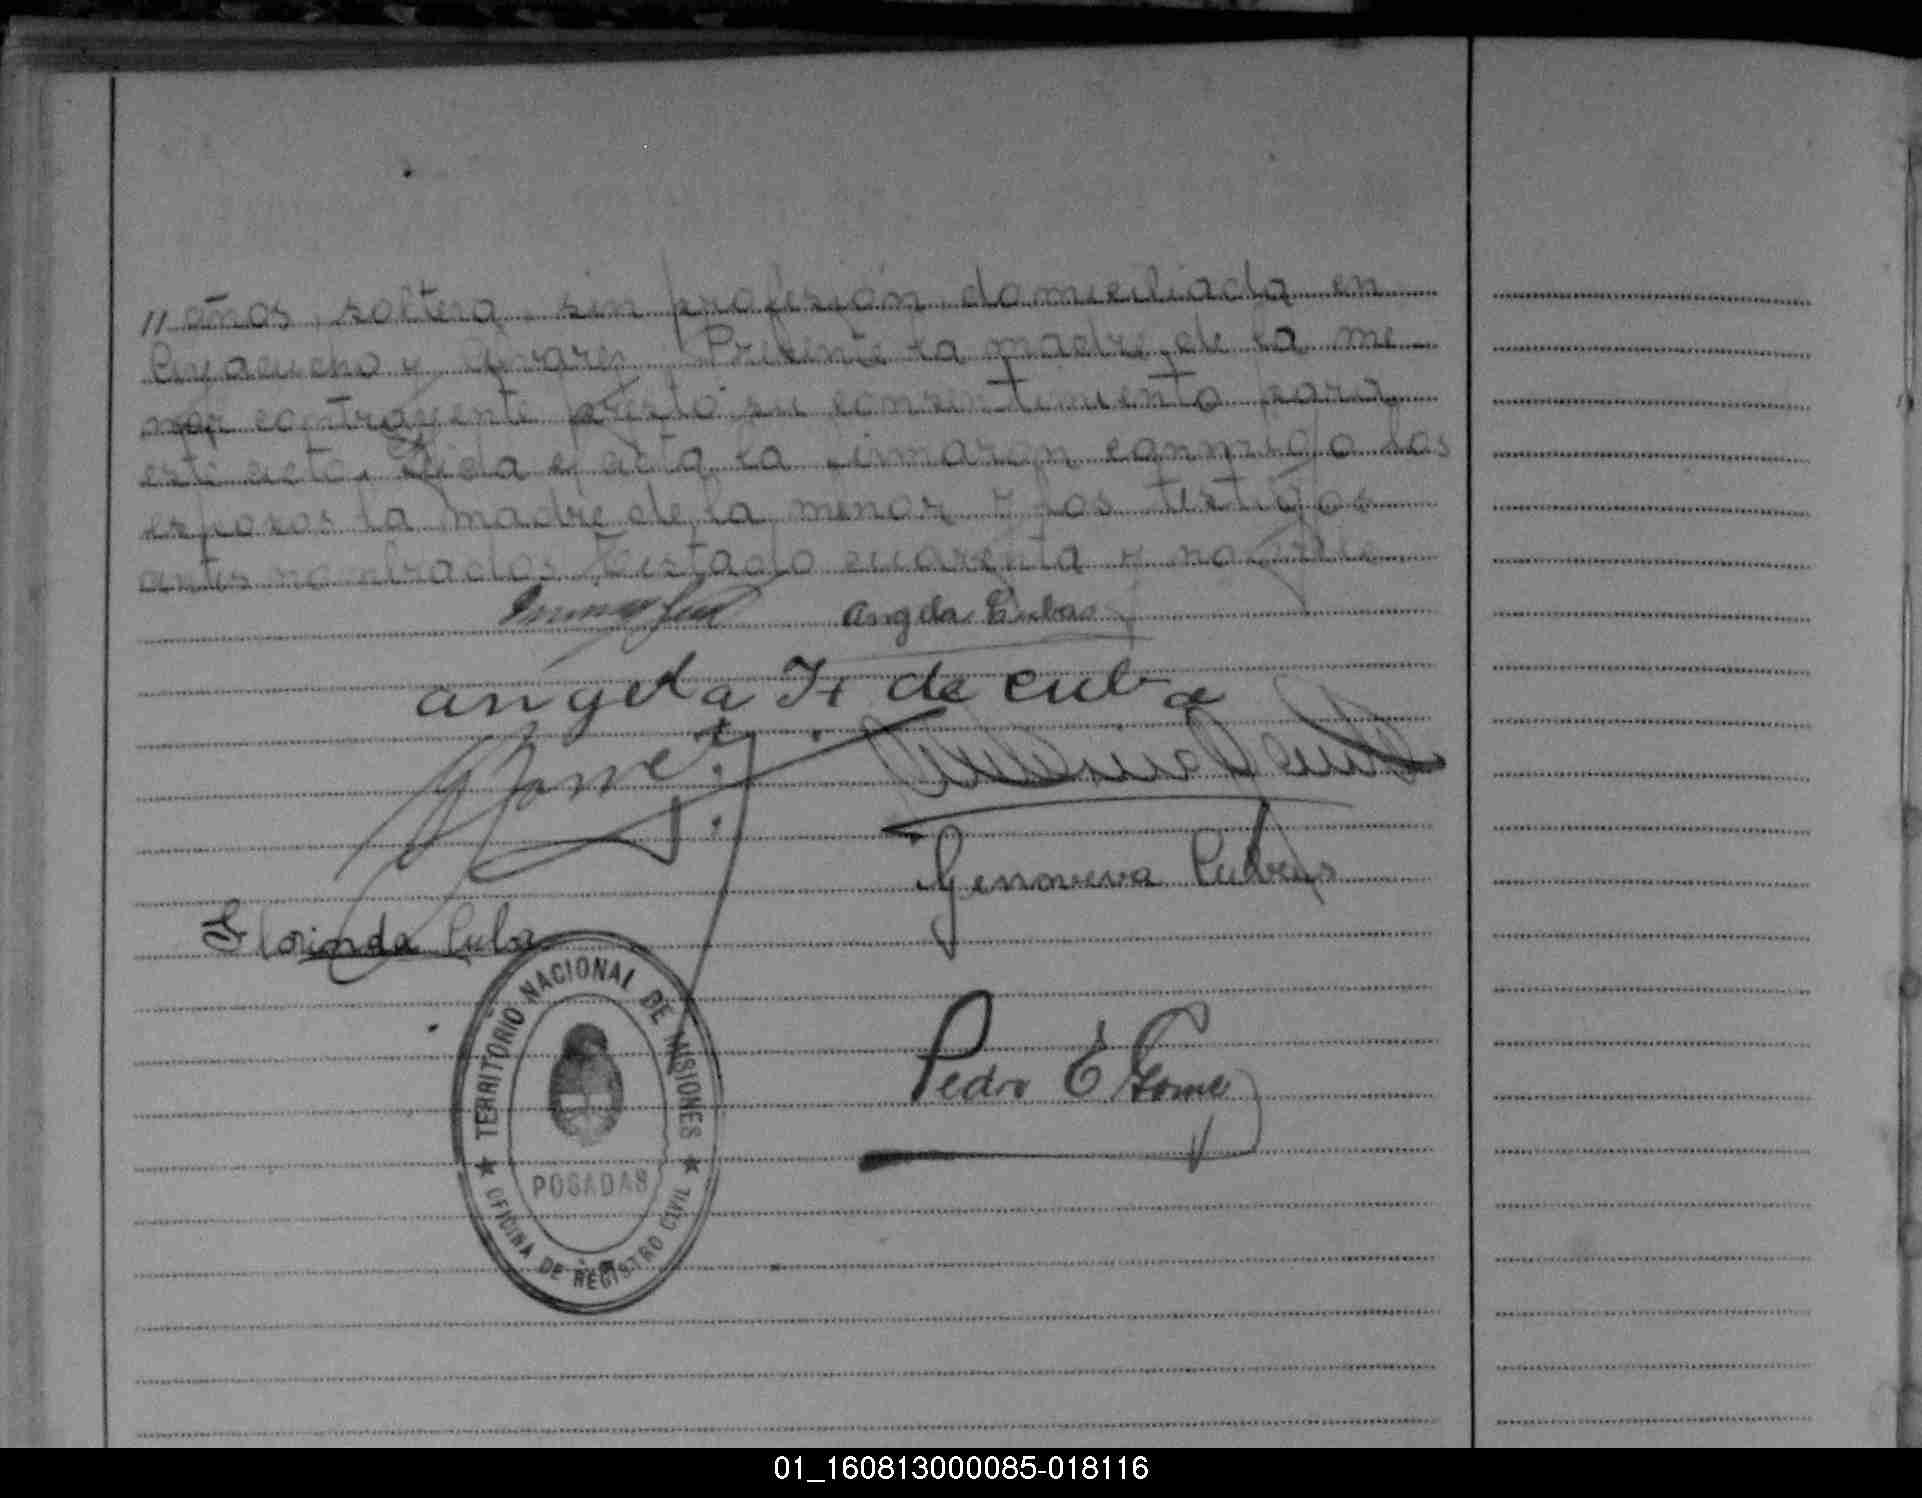 " años, soltera, sin profesión domiciliada en
Ayacucho y Alvarez. Presente la madre de la me-
nor contrayente prestó su consentimiento para
este acto. Leida el acta la firmaron conmigo los
esposos la madre de la menor y los testigos
antes nombrados. Testado cuarenta y no vale
Angela Cubas
angela F. de cuba
Genoveva Cubas
Florinda Cuba
TERRITORIO NACIONAL DE MISIONES
POSADAS
OFICINA DE REGISTRO CIVIL
Pedro E Gomez
01_160813000085-018116